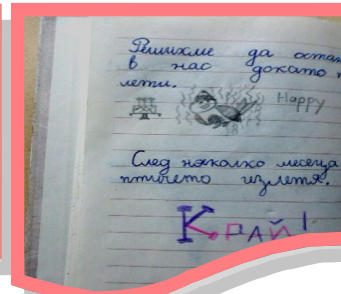 Решихме да остан
в нас докато
лети.
Happy
След няколко месеца
птичето излетя.
КРАЙ!